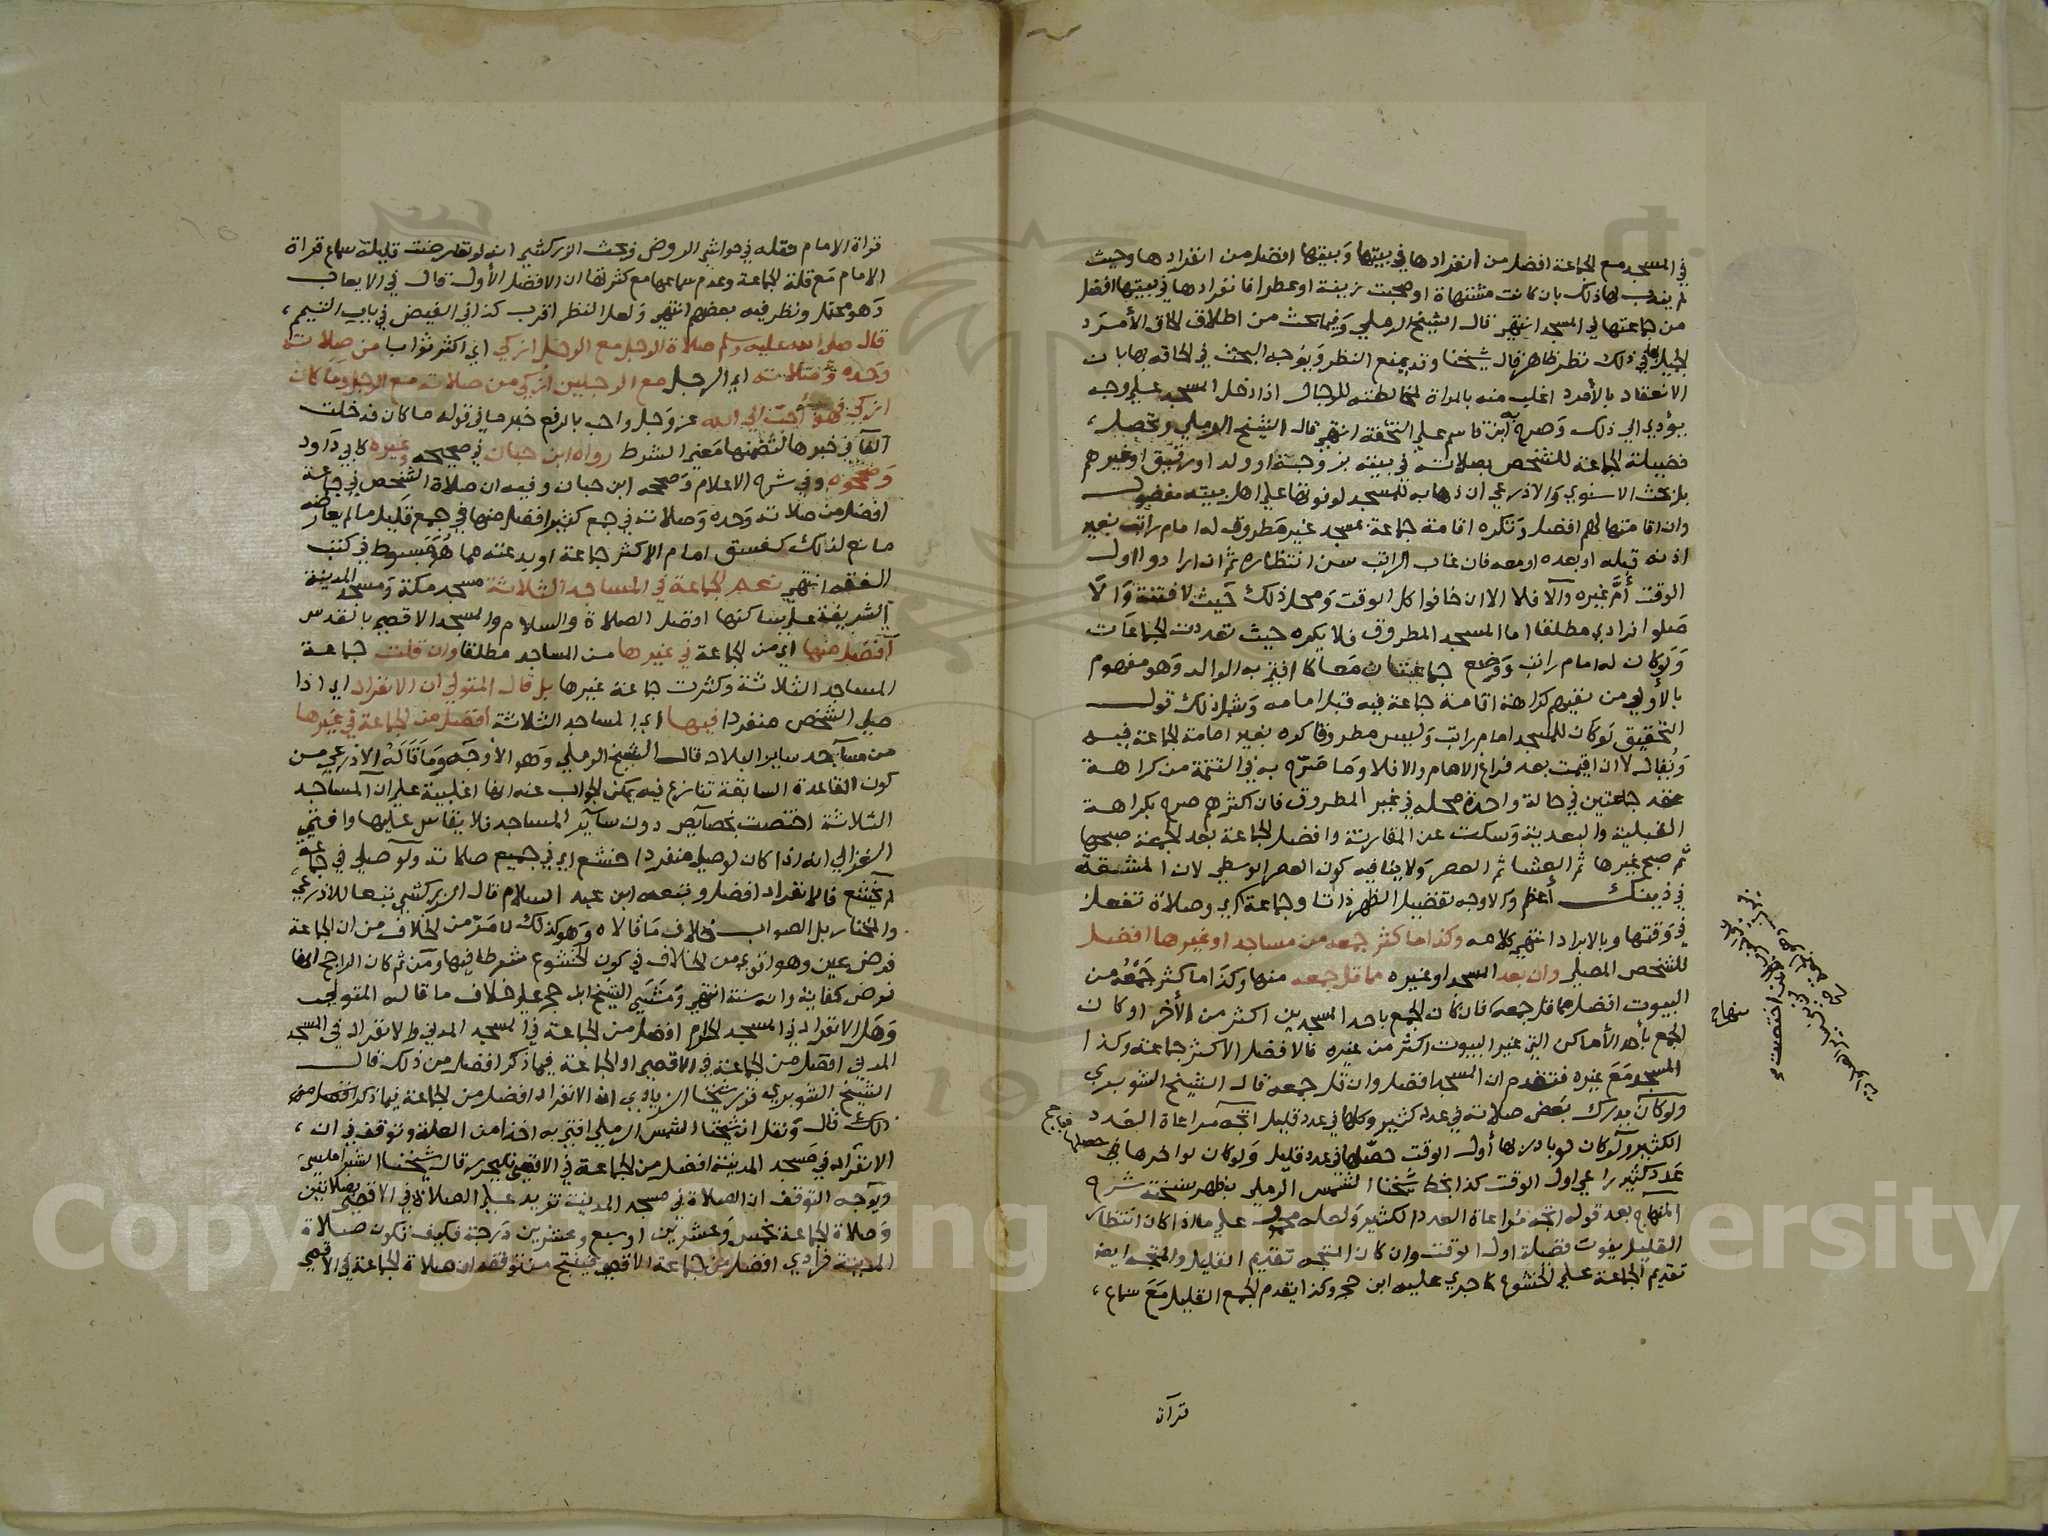 في المسجد مع الجماعة افضل من انفرادها في بيتها وبيتها افضل من انفرادها وحيث
لم يندب لها ذلك بان كانت مشتهاة او صحبت زينة او عطرا فانفرادها في بيتها افضل
من جماعتها في المسجد انتهى قال الشيخ الرملي وفيما بحث من اطلاق الحاق الأمرد
الجميل بها في ذلك نظر ظاهر قال شيخنا وقد يمنع النظر ويوجه البحث في الحاقه بها بان
الافتتان بالأمرد اغلب منه بالمراة لمخالطته للرجال اذا دخل المسجد على وجه
يؤدي الى ذلك وصرح ابن قاسم على التحفة انتهى قال الشيخ الرملي وتحصل
فضيلة الجماعة للشخص بصلاته في بيته بزوجة او ولد او رقيق او غيرهم
بل بحث الاسنوي والاذرعي ان ذهابه للمسجد لو فوتها على اهل بيته مفضول
وان اقامتها لهم افضل وتكره اقامة جماعة بمسجد غير مطروق له امام راتب بغير
اذنه قبله او بعده او معه فان غاب الراتب سن انتظاره ثم ان ارادوا اول
الوقت أم غيره والا فلا الا ان خافوا كل الوقت ومحل ذلك حيث لا فتنة والا
صلوا فرادى مطلقا اما المسجد المطروق فلا يكره حيث تعددت الجماعات
ولو كان له امام راتب ووقع جماعتان معا كما افتى به الوالد وهو مفهوم
بالأولى من نفيهم كراهة اقامة جماعة فيه قبل امامه ومثل ذلك قول
التحقيق لو كان للمسجد امام راتب وليس مطروقا كره بغير اقامة الجماعة فيه
ويقال لا ان اقيمت بعد فراغ الامام والا فلا وما صرح به في التتمة من كراهة
عقد جماعتين في حالة واحدة محله في غير المطروق فان اكثرهم صرح بكراهة
القبلية والبعدية وسكت عن المقارنة وافضل الجماعة بعد الجمعة صبحها
ثم صبح غيرها ثم العشا ثم العصر ولا ينافيه كون العصر الوسطى لان المشقة
في ذينك أعظم والاوجه تفضيل الظهر ذاتا وجماعة اي وصلاة تفعل
في وقتها وبالابراد انتهى كلامه وكذا ما كثر جمعه من مساجد او غيرها افضل
للشخص المصلى وان بعد المسجد او غيره ما قل جمعه منها وكذا ما كثر جمعه من
البيوت افضل مما قل جمعه فان كان الجمع باحد المسجدين اكثر من الأخر او كان
الجمع بأحد الأماكن التي غير البيوت اكثر من غيره فالافضل الاكثر جماعة وكذا
المسجد مع غيره فتقدم ان المسجد افضل وان قل جمعه قال الشيخ الشوبري
ولو كان يدرك بعض صلاته في عدد كثير وكلها في عدد قليل اتجه مراعاة العدد
الكثير ولو كان لو بادر بها أول الوقت حصلها في عدد قليل ولو كان لو اخرها حصلها في
عدد كثير راعى اول الوقت كذا بخط شيخنا الشمس الرملي بظهر نسخة شرح
المنهاج بعد قوله اتجه مراعاة العدد الكثير ولعله محمول على ما اذا كان انتظار
القليل يفوت فضلة اول الوقت وان كان المتجه تقديم القليل والمتجه ايضا
تقديم الجماعة على الخشوع كما جرى عليه ابن حجر وكذا يقدم الجمع القليل مع سماع
قرآة
قراة الامام فنقله في حواشي الروض وبحث الزركشي انه لو تعارضت فضيلة سماع قراة
الامام مع قلة الجماعة وعدم سماعها مع كثرتها ان الافضل الأول قال في الايعاب
وهو محتمل ونظر فيه بعضهم انتهى ولعل النظر اقرب كذا في الفيض في باب التيمم
قال صلى الله عليه وسلم صلاة الرجل مع الرجل ازكى اي اكثر ثوابا من صلاته
وحده وصلاته اي الرجل مع الرجلين أزكى من صلاته مع الرجل وما كان
اكثر فهو أحب الى الله عز وجل واحب بالرفع خبر ما في قوله ما كان فدخلت
الفا في خبرها لتضمنها معنى الشرط رواه ابن حبان في صحيحه وغيره كابي داود
وصححوه وفي شرح الاعلام وصححه ابن حبان وفيه ان صلاة الشخص في جماعة
افضل من صلاته وحده وصلاته في جمع كثير افضل منها في جمع قليل ما لم يعارضه
مانع لذلك كفسق امام الاكثر جماعة او بدعته مما هو مبسوط في كتب
الفقه انتهى نعم الجماعة في المساجد الثلاثة مسجد مكة ومسجد المدينة
الشريفة على ساكنها افضل الصلاة والسلام والمسجد الاقصى بالقدس
أفضل منها اي من الجماعة في غيرها من المساجد مطلقا وان قلت جماعة
المساجد الثلاثة وكثرت جماعة غيرها بل قال المتولي ان الانفراد اي اذا
صلى الشخص منفردا فيها اي المساجد الثلاثة افضل من الجماعة في غيرها
من مساجد ساير البلاد قال الشيخ الرملي وهو الأوجه وما قاله الاذرعي من
كون القاعدة السابقة تنازع فيه يمكن الجواب عنه انها اغلبية على ان المساجد
الثلاثة اختصت بخصايص دون ساير المساجد فلا يقاس عليها وافتى
الغزالي انه اذا كان لو صلى منفردا خشع اي في جميع صلاته ولو صلى في جماعة
لم يخشع فالانفراد افضل وتبعه ابن عبد السلام قال الزركشي تبعا للاذرعي
والمختار بل الصواب خلاف ما قالاه وهو كذلك لما مر من الخلاف من ان الجماعة
فرض عين وهو اقوى من الخلاف في كون الخشوع شرطا فيها ومن ثم كان الراجح انها
فرض كفاية وانه سنة انتهى ومشى الشيخ ابن حجر على خلاف ما قاله المتولى
وهل الانفراد في المسجد الحرام افضل من الجماعة في المسجد المدني والانفراد في المسجد
المدني افضل من الجماعة في الاقصى او الجماعة فيما ذكر افضل من ذلك قال
الشيخ الشوبري قرر شيخنا الزيادي ان الانفراد افضل من الجماعة فيما ذكر افضل من
ذلك قال ونقل ان شيخنا الشمس الرملي افتى به اخذا من العلة وتوقف في ان
الانفراد في مسجد المدينة افضل من الجماعة في الاقصى فليحرر قال شيخنا الشبراملسي
ويوجه التوقف ان الصلاة في مسجد المدينة تزيد على الصلاة في الاقصى بصلاتين
وصلاة الجماعة بخمس وعشرين او سبع وعشرين درجة فكيف تكون صلاة
المدينة فرادى افضل من جماعة الاقصى فينتج من توقفه ان صلاة الجماعة في الاقصى